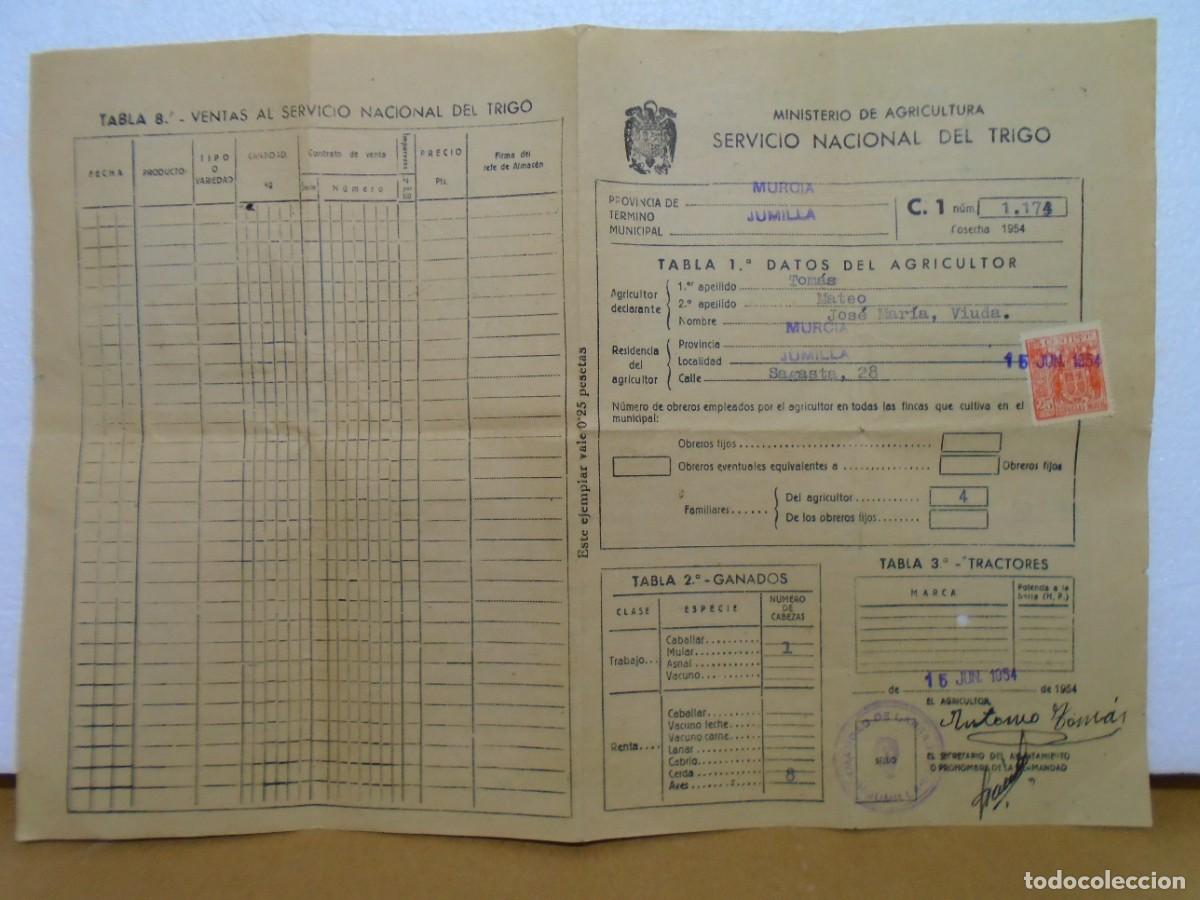 TABLA 8.ª - VENTAS AL SERVICIO NACIONAL DEL TRIGO
FECHA
PRODUCTO
TIPO
O
VARIEDAD
CANTIDAD
kg
Contrato de venta
Serie
Número
P. por 100
PRECIO
Pts.
Firma del
Jefe de Almacén
Este ejemplar vale 0'25 pesetas
MINISTERIO DE AGRICULTURA
SERVICIO NACIONAL DEL TRIGO
PROVINCIA DE MURCIA
TERMINO
MUNICIPAL JUMILLA
C. 1 núm. 1.174
Cosecha 1954
TABLA 1.ª DATOS DEL AGRICULTOR
Agricultor
declarante
1.er apellido Tomás
2.º apellido Mateo
Nombre José María, Viuda.
Residencia
del
agricultor
Provincia MURCIA
Localidad JUMILLA
Calle Sagasta, 28
15 JUN. 1954
25
Número de obreros empleados por el agricultor en todas las fincas que cultiva en el
municipal:
Obreros fijos
Obreros eventuales equivalentes a Obreros fijos
Familiares
Del agricultor 4
De los obreros fijos
TABLA 2.ª - GANADOS
CLASE
ESPECIE
NUMERO
DE
CABEZAS
Trabajo
Caballar
Mular 1
Asnal
Vacuno
Renta
Caballar
Vacuno leche
Vacuno carne
Lanar
Cabrío
Cerda
Aves 8
TABLA 3.ª - TRACTORES
MARCA
Potencia a la
barra (H. P.)
de 15 JUN. 1954 de 1954
EL AGRICULTOR,
Antonio Tomás
SELLO
EL SECRETARIO DEL AYUNTAMIENTO
O PROHOMBRE DE LA HERMANDAD
todocoleccion